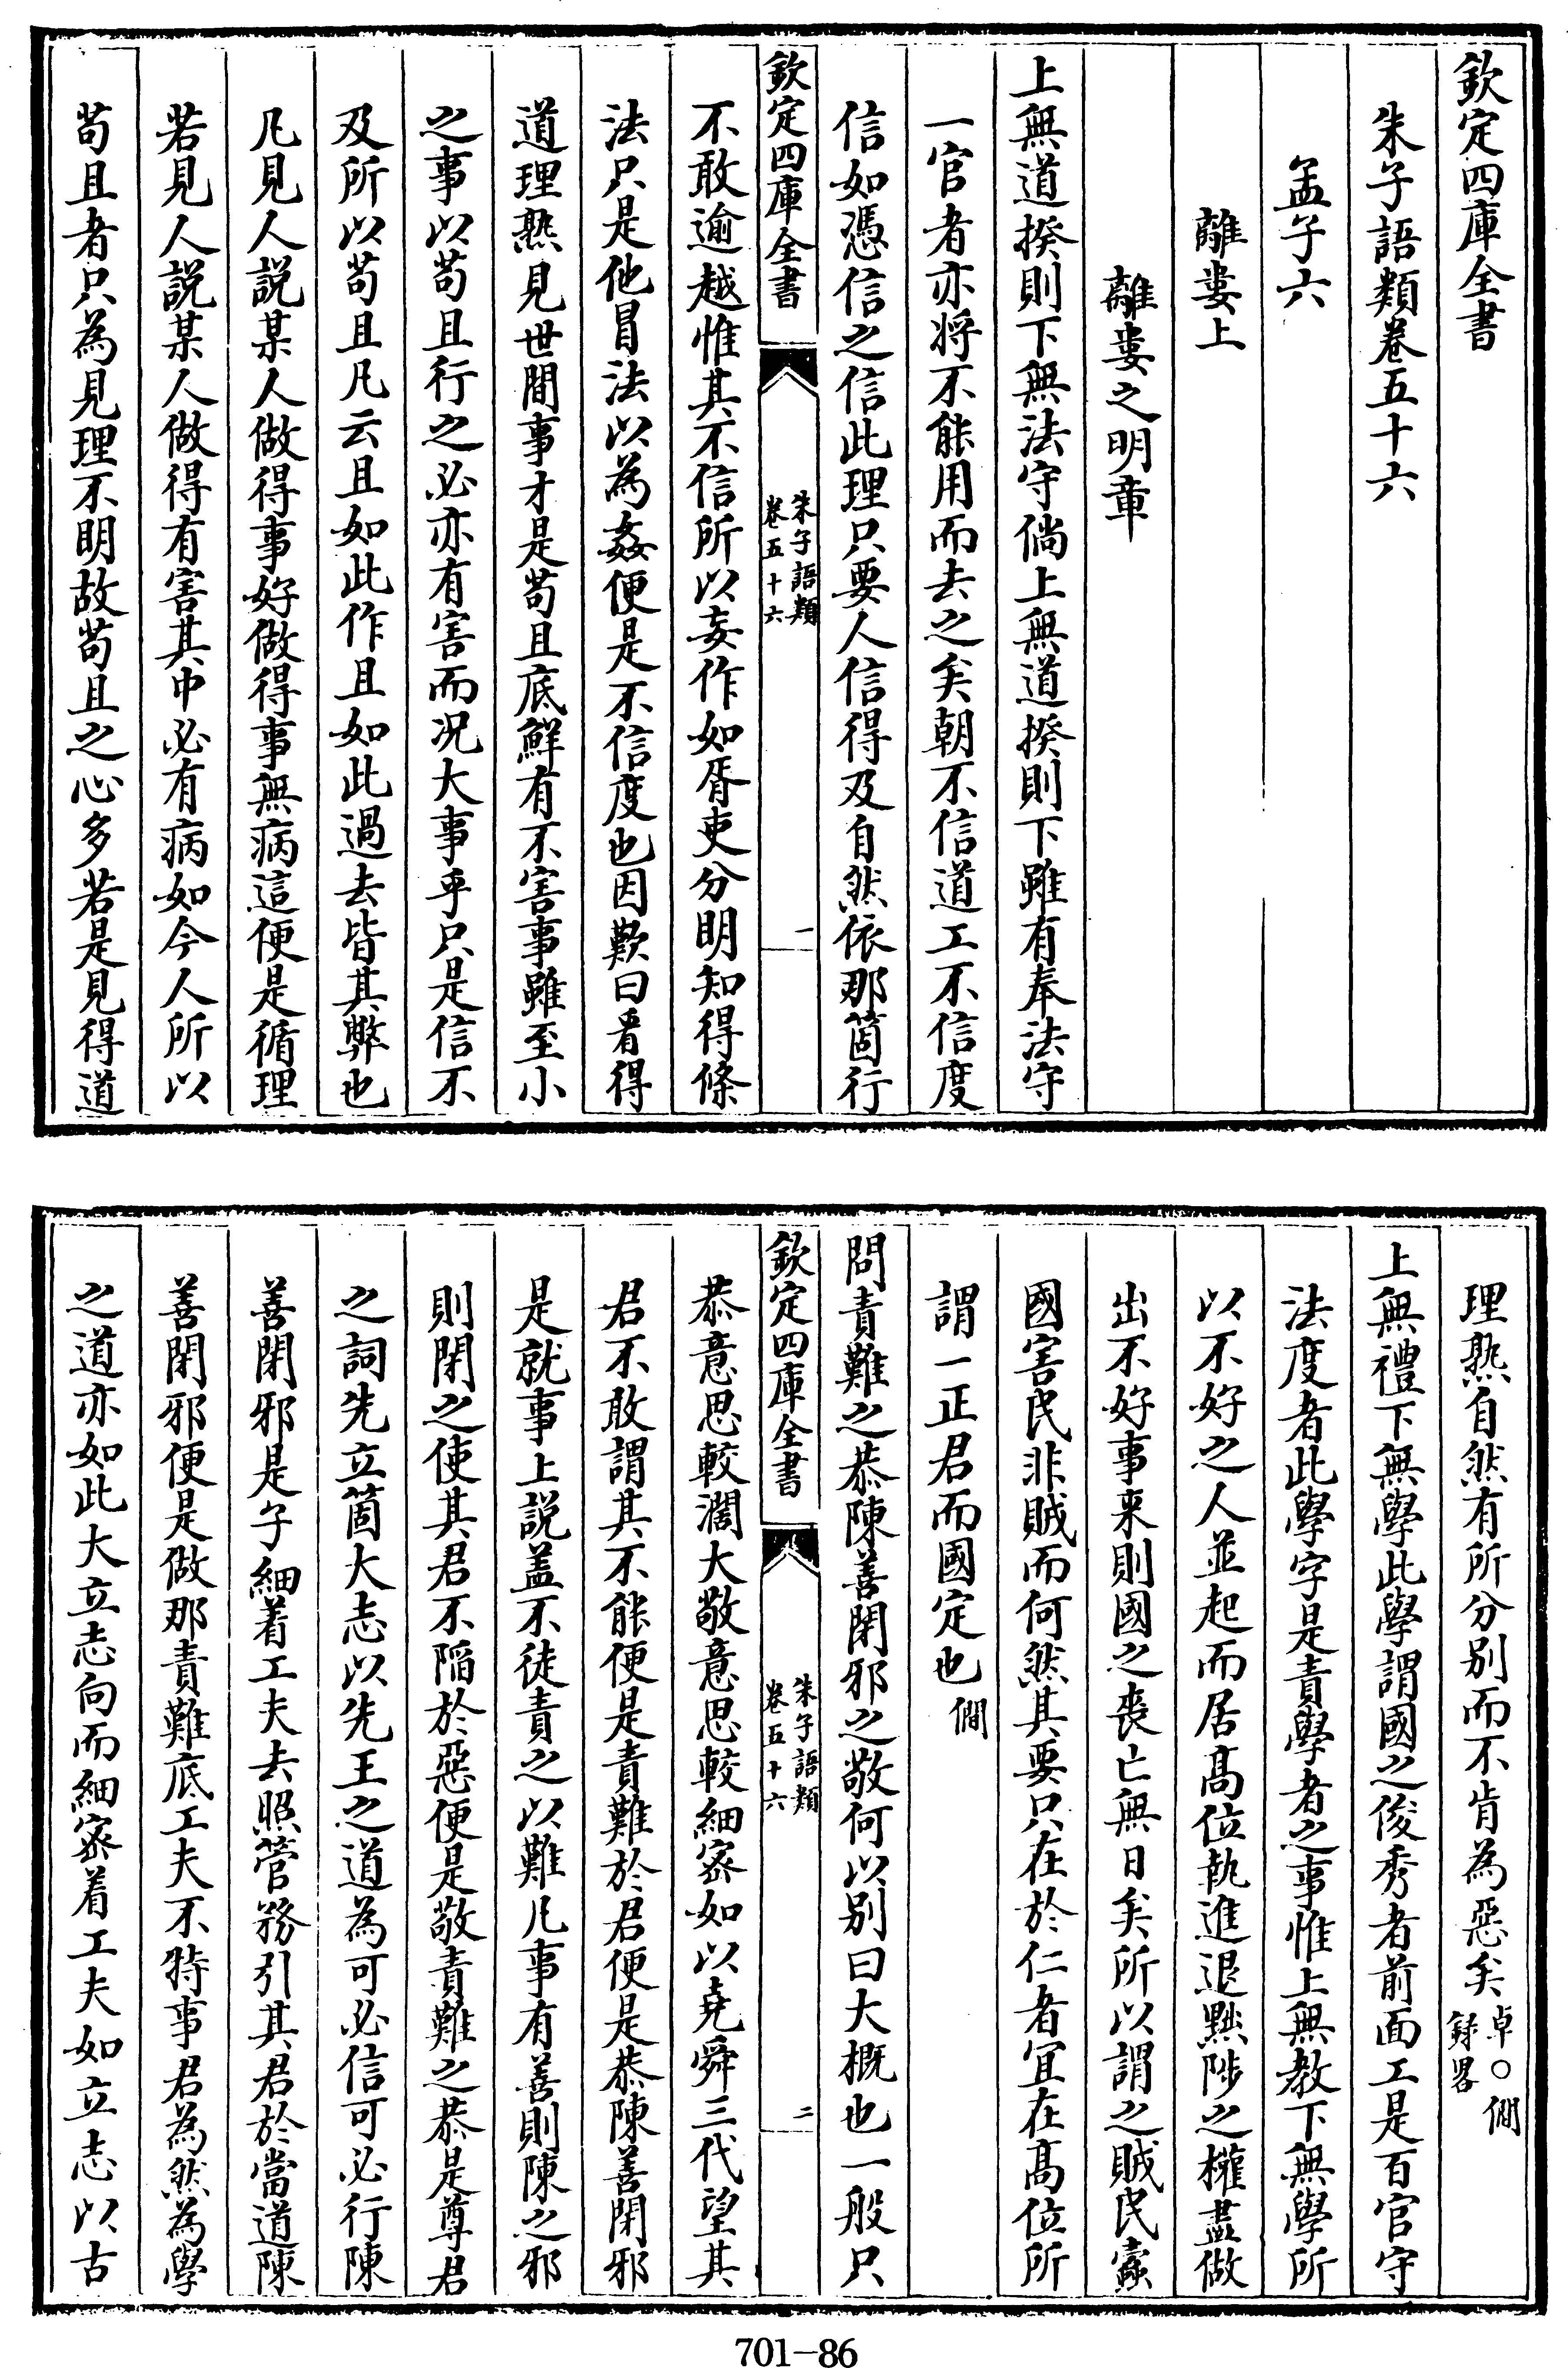 欽定四庫全書
朱子語類卷五十六
孟子六
離婁上
離婁之明章
上無道揆則下無法守倘上無道揆則下雖有奉法守
一官者亦將不能用而去之矣朝不信道工不信度
信如憑信之信此理只要人信得及自然依那箇行
欽定四庫全書
朱子語類
卷五十六
一
不敢逾越惟其不信所以妄作如胥吏分明知得條
法只是他冒法以為姦便是不信度也因歎曰看得
道理熟見世間事才是苟且底鮮有不害事雖至小
之事以苟且行之必亦有害而况大事乎只是信不
及所以苟且凡云且如此作且如此過去皆其弊也
凡見人説某人做得事好做得事無病這便是循理
若見人説某人做得有害其中必有病如今人所以
苟且者只為見理不明故苟且之心多若是見得道
理熟自然有所分别而不肯為惡矣卓〇僩
録畧
上無禮下無學此學謂國之俊秀者前面工是百官守
法度者此學字是責學者之事惟上無教下無學所
以不好之人並起而居髙位執進退黜陟之權盡做
出不好事来則國之喪亡無日矣所以謂之賊民蠹
國害民非賊而何然其要只在於仁者宜在髙位所
謂一正君而國定也僩
問責難之恭陳善閉邪之敬何以别曰大概也一般只
欽定四庫全書
朱子語類
卷五十六
二
恭意思較濶大敬意思較細宻如以堯舜三代望其
君不敢謂其不能便是責難於君便是恭陳善閉邪
是就事上説盖不徒責之以難凡事有善則陳之邪
則閉之使其君不陷於惡便是敬責難之恭是尊君
之詞先立箇大志以先王之道為可必信可必行陳
善閉邪是子細着工夫去照管務引其君於當道陳
善閉邪便是做那責難底工夫不特事君為然為學
之道亦如此大立志向而細宻着工夫如立志以古
701-86